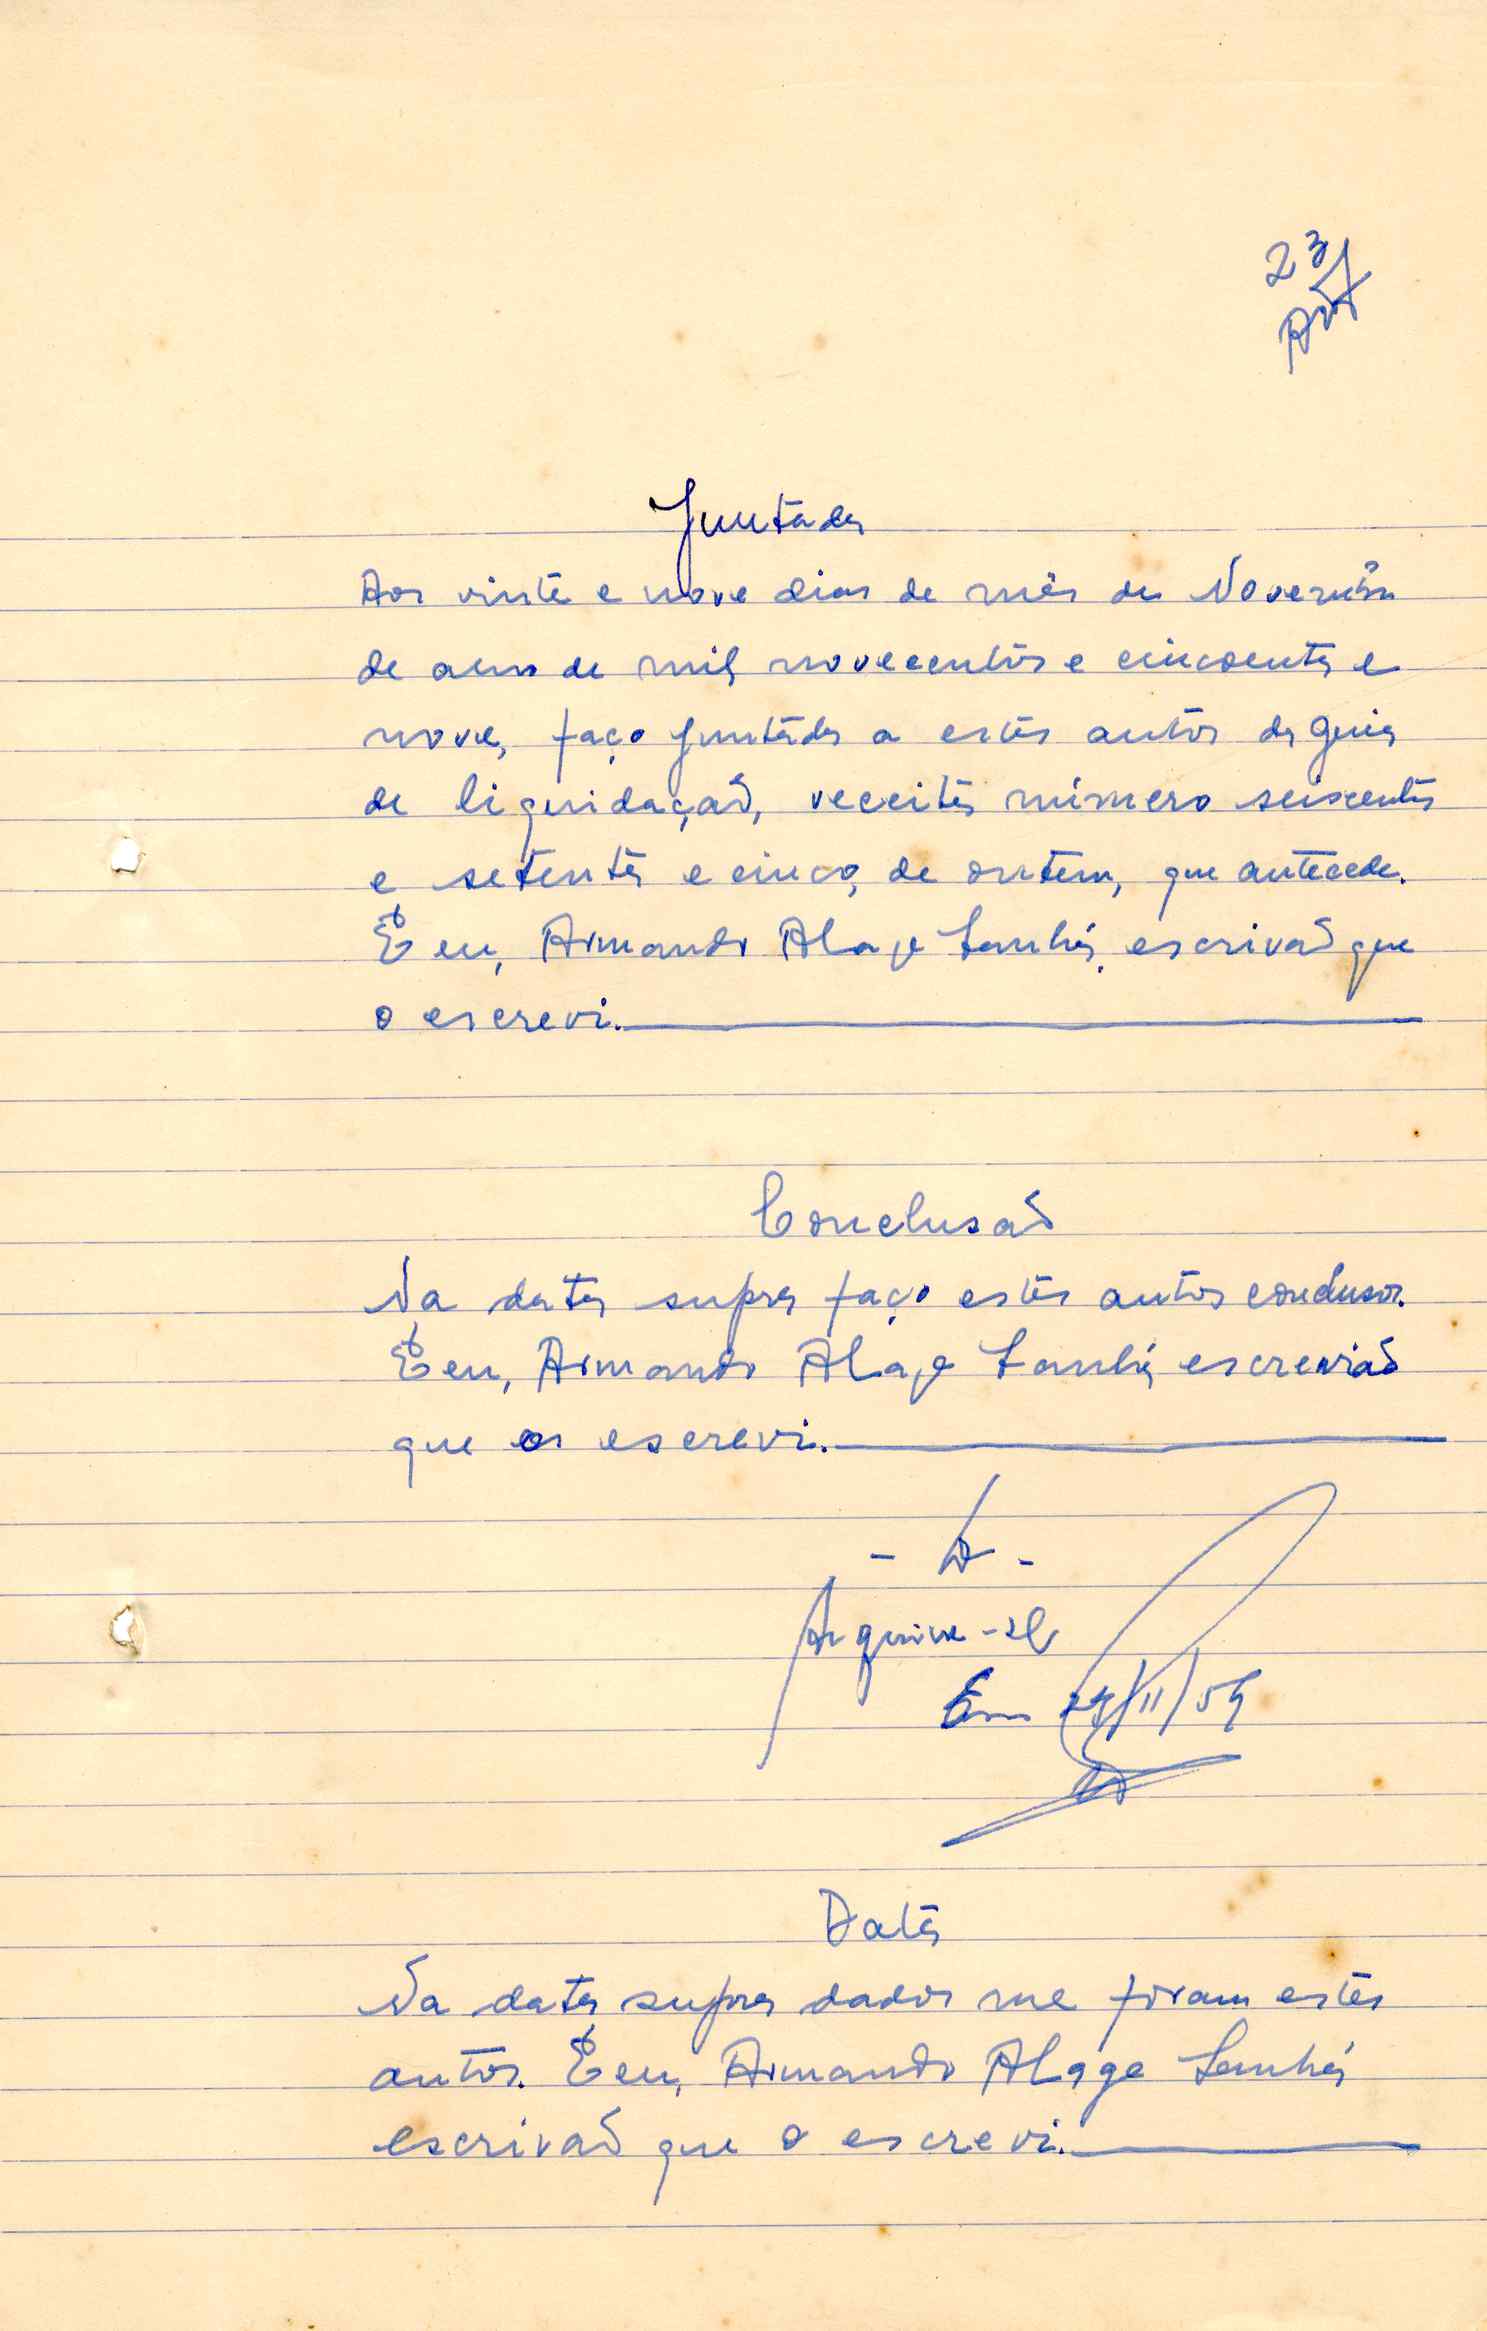 23
Juntada
Aos vinte e nove dias de mês de Novembro
de ano de mil novecentos e cincoenta e
nove, faço juntada a estes autos da guia
de liquidação, receita número seiscentos
e setenta e cinco, de ontem, que antecede.
E eu, Armando Alage escrivão que
o escrevi.
Conclusão
Na data supra faço estes autos conclusos.
E eu, Armando Alage escrevião
que os escrevi.
Arquive-se
Em 29/11/59
Data
Na data supra dados me foram estes
autos. E eu, Armando Alage
escrivão que o escrevi.